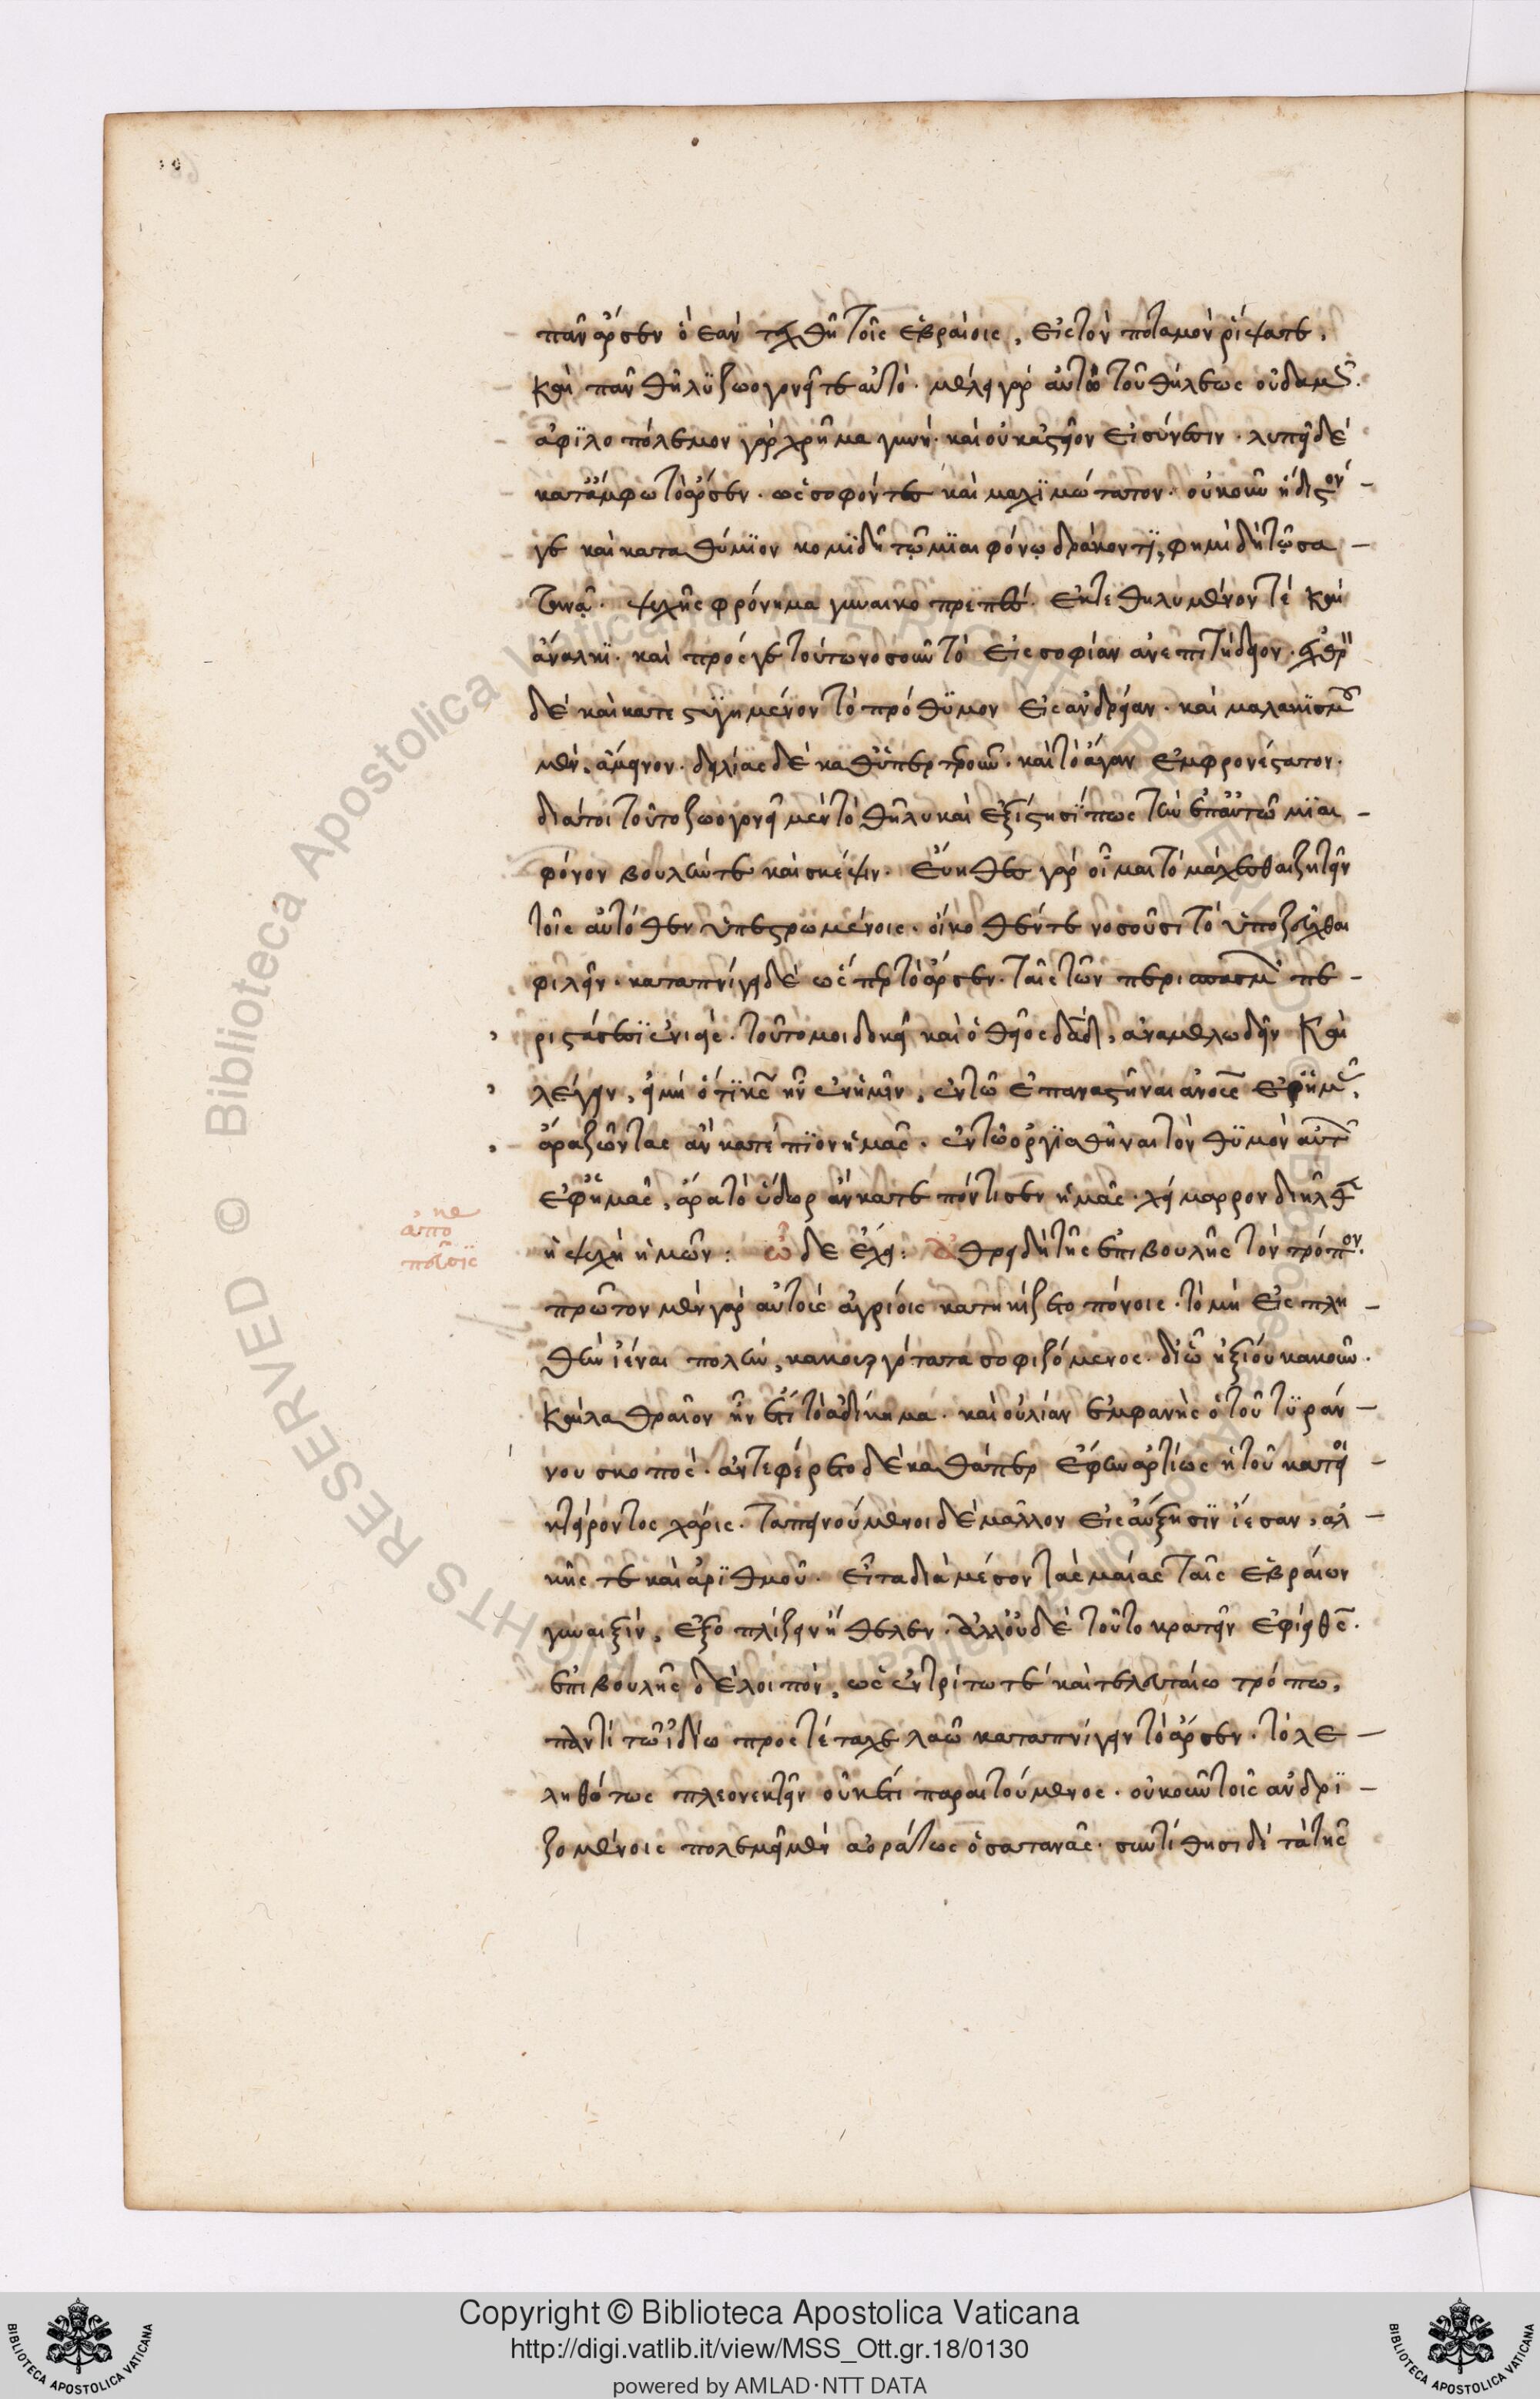 πᾶν ἄρσεν ὁ ἐὰν τεχθῆ τοῖς ἑβραίοις, εἰς τὸν ποταμὸν ρίψατε,
καὶ πᾶν θῆλυ ζωογονεῖτε αὐτό. μέλει γὰρ αὐτῶ τοῦ θήλεως οὐδαμῶς.
ἀφιλοπόλεμον γὰρ χρῆμα γυνή. καὶ οὐκ ἀστεῖον εἰς σύνεσιν. λυπεῖ δὲ
κατάμφω τὸ ἄρσεν. ὡς σοφόν τε καὶ μαχιμώτατον. οὐκοῦν ἥδιστόν
γε καὶ καταθύμιον κομιδῆ τῷ μιαιφόνῳ δράκοντι, φημὶ δὴ τῷ σα
τανᾷ. ψυχῆς φρόνημα γυναικοπρεπές. ἐκτεθηλυμένον τέ καὶ
ἄναλκι. καὶ πρός γε τούτω νοσοῦν τὸ εἰς σοφίαν ἀνεπιτήδειον. ἐχθρὸν
δὲ καὶ κατεστυγημένον τὸ πρόθυμον εἰς ἀνδρείαν. καὶ μαλακισμοῦ
μὲν, ἄμεινον. δειλίας δὲ καθυπέρτερον. καὶ τὸ ἄγαν ἐμφρονέστατον.
διάτοι τοῦτο ζωογονεῖ μὲν τὸ θῆλυ καὶ ἐξίστησί πως τῶν ἐπ' αὐτῶ μιαι
φόνον βουλήν τε καὶ σκέψιν. εὔηθες γὰρ οἶμαι τὸ μάχεσθαι ζητεῖν
τοῖς αὐτόθεν ὑπεστρωμένοις. οἴκοθέν τε νοσοῦσι τὸ ὑπεζεῦχθαι
φιλεῖν. καταπνίγει δὲ ὥσπερ τὸ ἄρσεν. ταῖς τῶν περισπασμῶν πε
ριστάσεσιν ἐνιείς. τοῦτο μοι δοκεῖ καὶ ὁ θεῖος δαδ, ἀναμελωδεῖν καὶ
λέγειν, εἰ μὴ ὅτι κς ἦν ἐν ἡμῖν, ἐν τῶ ἐπαναστῆναι ανους ἐφ' ἡμᾶς,
ἄρα ζῶντας ἂν κατέπιον ἡμᾶς. ἐν τῶ ὀργισθῆναι τὸν θυμὸν αὐτῶν
ἐφ' ἡμᾶς, ἄρα τὸ ὕδωρ ἂν κατεπόντισεν ἡμᾶς. χείμαρρον διῆλθεν
ἡ ψυχὴ ἡμῶν: ὧδε ἔχει: ἄθρει δὴ τῆς ἐπιβουλῆς τὸν τρόπον.
πρῶτον μὲν γὰρ αὐτοὺς ἀγρίοις κατῃκίζετο πόνοις. τὸ μὴ εἰς πλη
θὺν ἰέναι πολλήν, κακουργότατα σοφιζόμενος. δι' ὧν ἠξίου κακοῦν.
καὶ λαθραῖον ἦν ἔτι τὸ ἀδίκημα. καὶ οὐ λίαν ἐμφανὴς ὁ τοῦ τυράν
νου σκοπός. ἀντεφέρετο δὲ καθάπερ ἔφην ἀρτίως ἡ τοῦ κατοι
κτείροντος χάρις. ταπεινούμενοι δὲ μᾶλλον εἰς αὔξησιν ἵεσαν, ἀλ
κῆς τε καὶ ἀριθμοῦ. εἶτα διὰ μέσον τὰς μαίας ταῖς ἑβραίων
γυναιξίν, ἐξοπλίζειν ἤθελεν. ἀλλ' οὐδὲ τοῦτο κρατεῖν ἐφίεσθαι.
ἐπιβουλῆς δὲ λοιπόν, ὡς ἐν τρίτω τε καὶ τελευταίω τρόπω,
παντὶ τῶ ἰδίω προστέταχε λαῶ καταπνίγειν τὸ ἄρσεν. τὸ λε
ληθότως πλεονεκτεῖν οὐκ ἔτι παραιτούμενος. οὐκοῦν τοῖς ἀνδρι
ζομένοις πολεμεῖ μὲν ἀοράτως ὁ σατανᾶς. συντίθησι δὲ τὰ τῆς